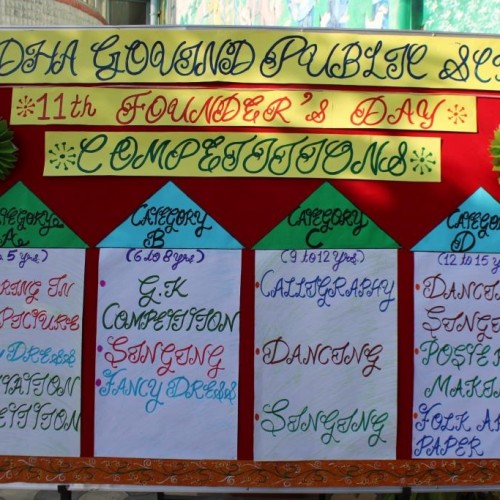 DHA GOVIND PUBLIC SC
11th FOUNDER'S DAY
COMPETITIONS
CATEGORY
A
5 yrs)
RING IN
PICTURE
DRESS
ETITION
CATEGORY
B
(6 to 8 yrs.)
G.K
COMPETITION
SINGING
FANCY DRESS
CATEGORY
C
(9 to 12 yrs.)
CALLIGRAPHY
DANCING
SINGING
CATEGORY
D
(12 to 15 y
DANCIN
SINGIN
POSTE
MAKI
FOLK AR
PAPER